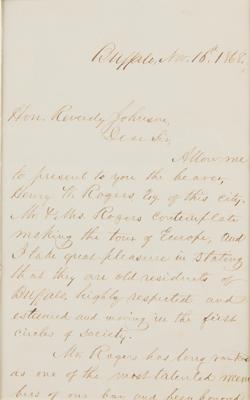 Buffalo, Nov. 16th 1868.
Hon. Reverdy Johnson,
Dear Sir,
Allow me
to present to you the bearer,
Henry W. Rogers, Esq. of this city.
Mr. & Mrs. Rogers contemplate
making the tour of Europe, and
I take great pleasure in stating
that they are old residents of
Buffalo, highly respected and
esteemed and moving in the first
circles of society.
Mr. Rogers has long ranked
as one of the most talented mem
bers of our bar and been honored